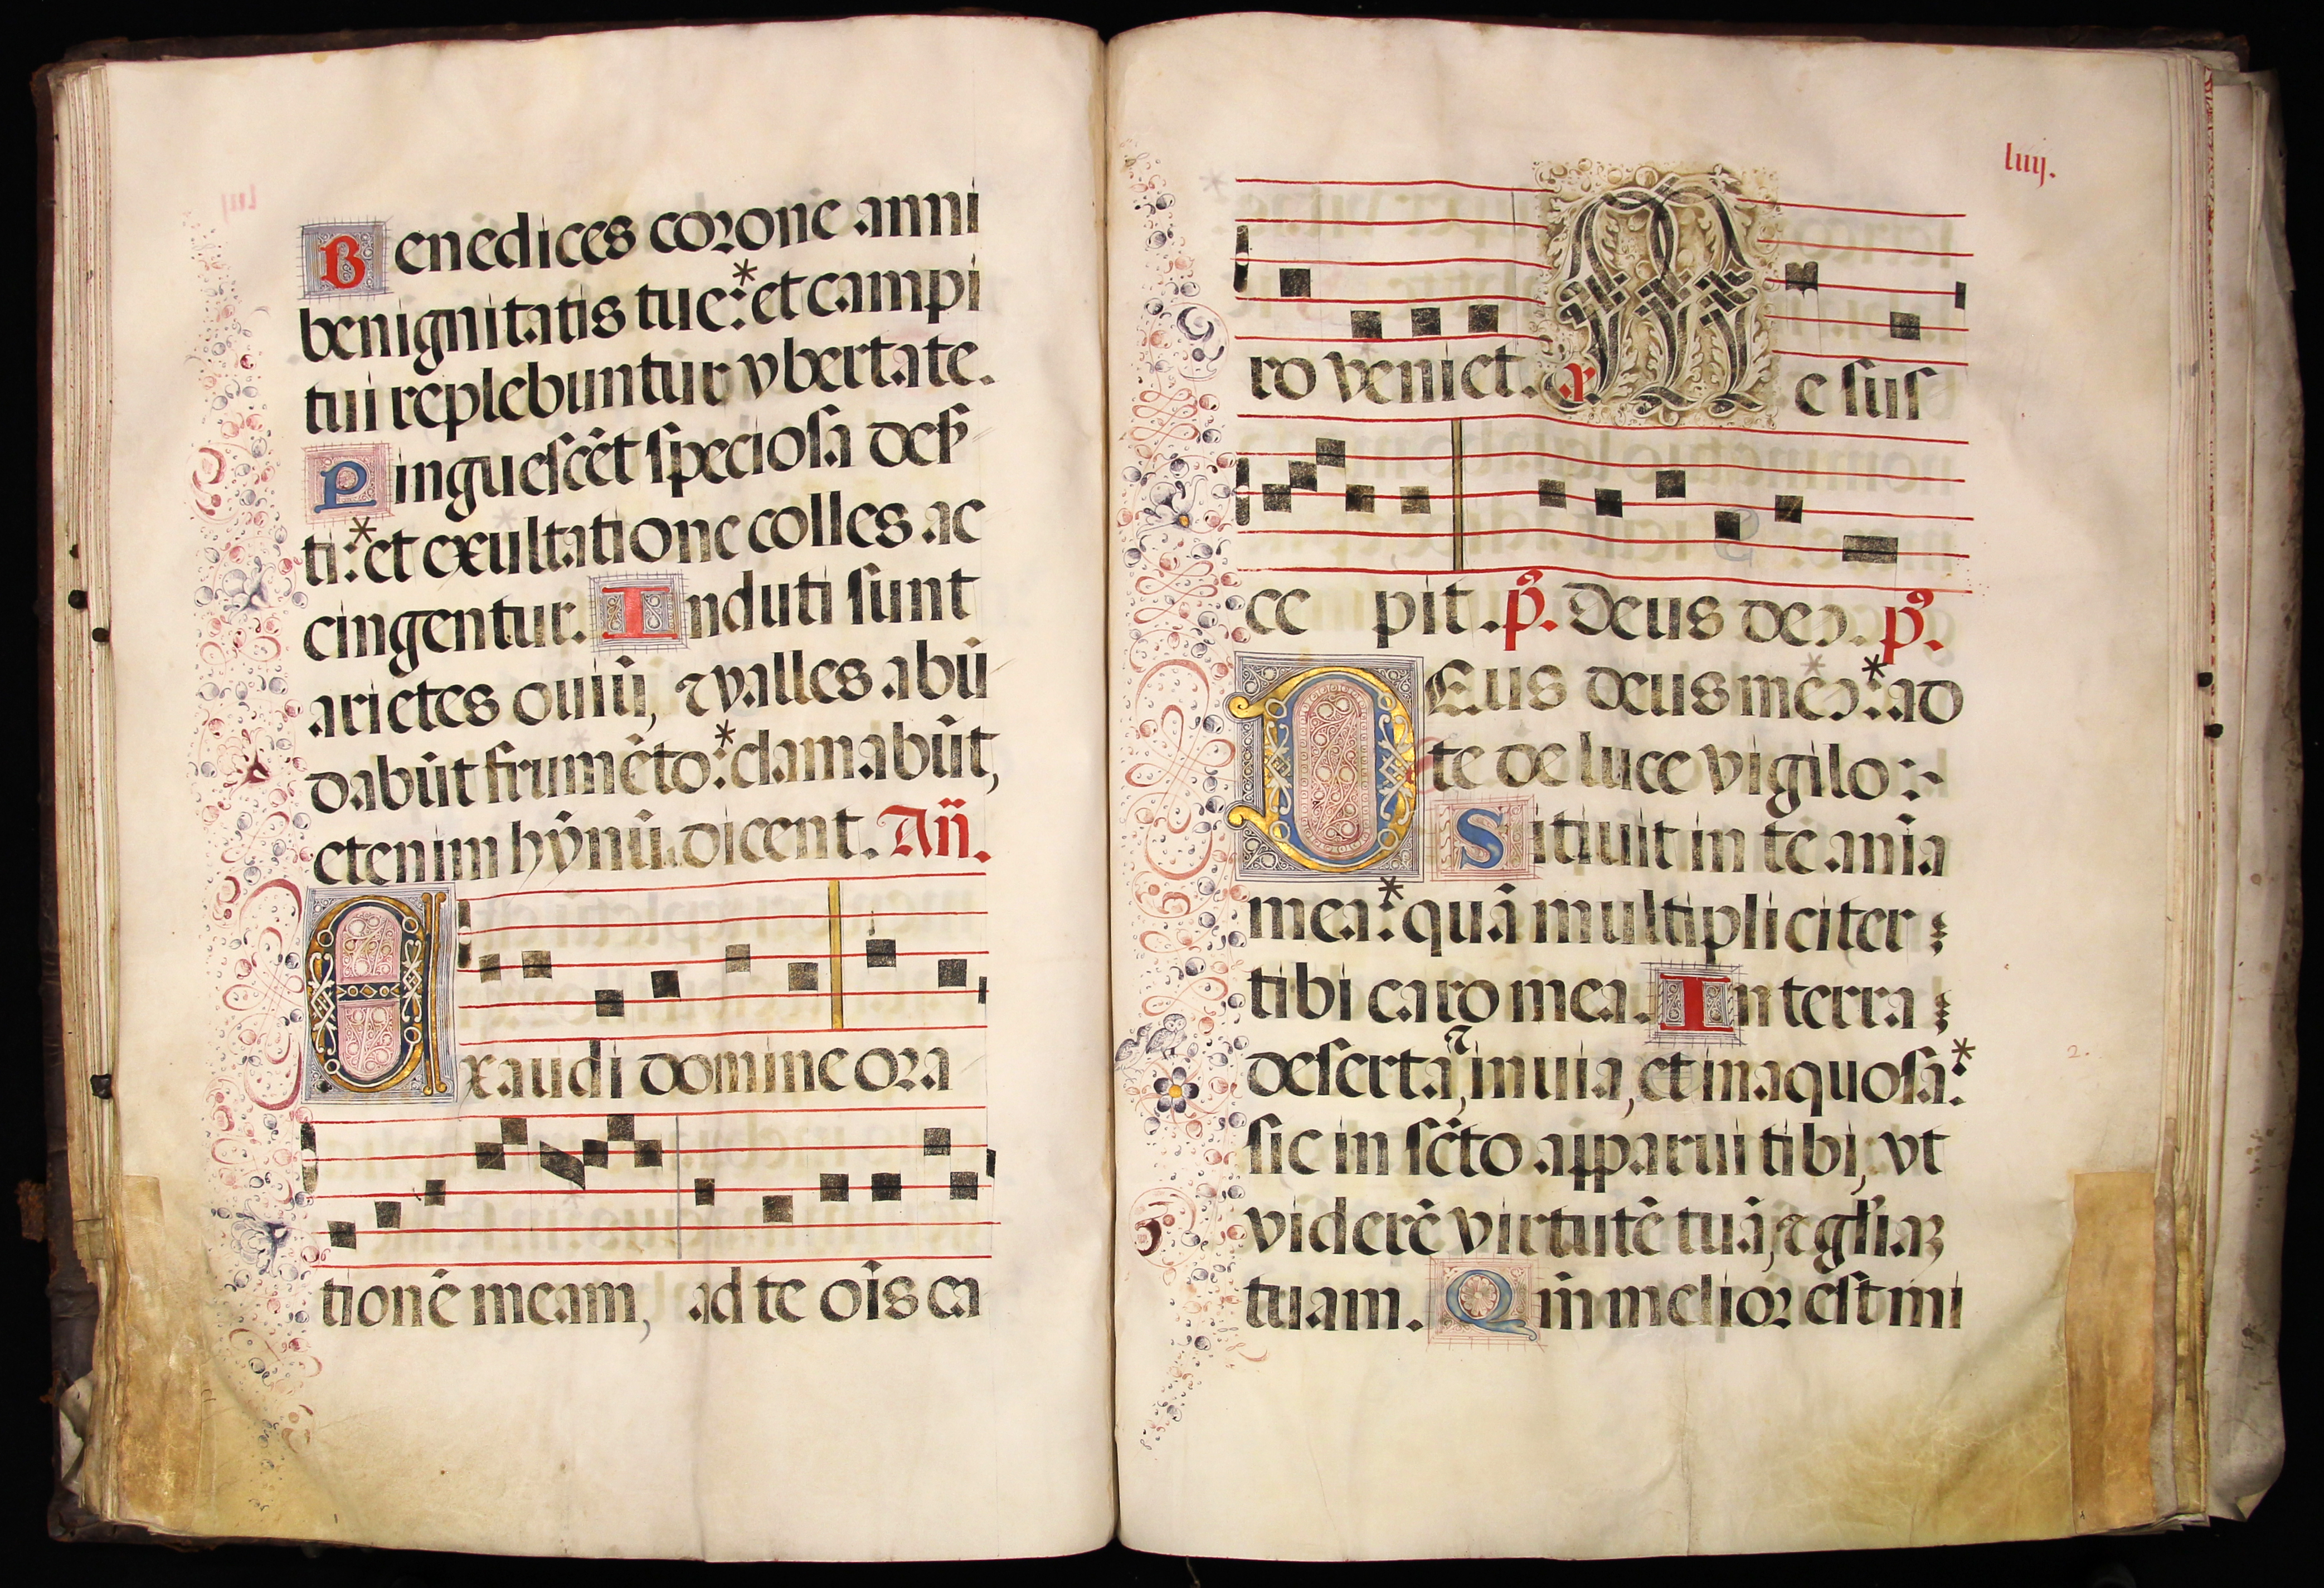 Benedices corone anni
benignitatis tue:* et campi
tui replebuntur vbertate.
Pinguescẽt speciosa deß
ti:* et exultatione colles ac
cingentur. Induti sunt
arietes ouiũ, ⁊ valles abũ
dabũt frumẽto:* clamabũt,
etenim hỹnũ dicent. Añ.
Exaudi domine ora
tionẽ meam, ad te oĩs ca
liiij.
ro veniet. x. Me sus
ce pit. p̃. Deus deꝰ. p̃.
DEus deus meꝰ:* ad
te de luce vigilo:~
Sitiuit in te aĩa
mea:* quã multipliciter
tibi caro mea. In terra
deserta, ⁊ inuia, et inaquosa:*
sic in scto apparui tibi, vt
viderẽ virtutẽ tuã, ⁊ gl̃iaꝫ
tuam. Qm̃ melior est mi
2.